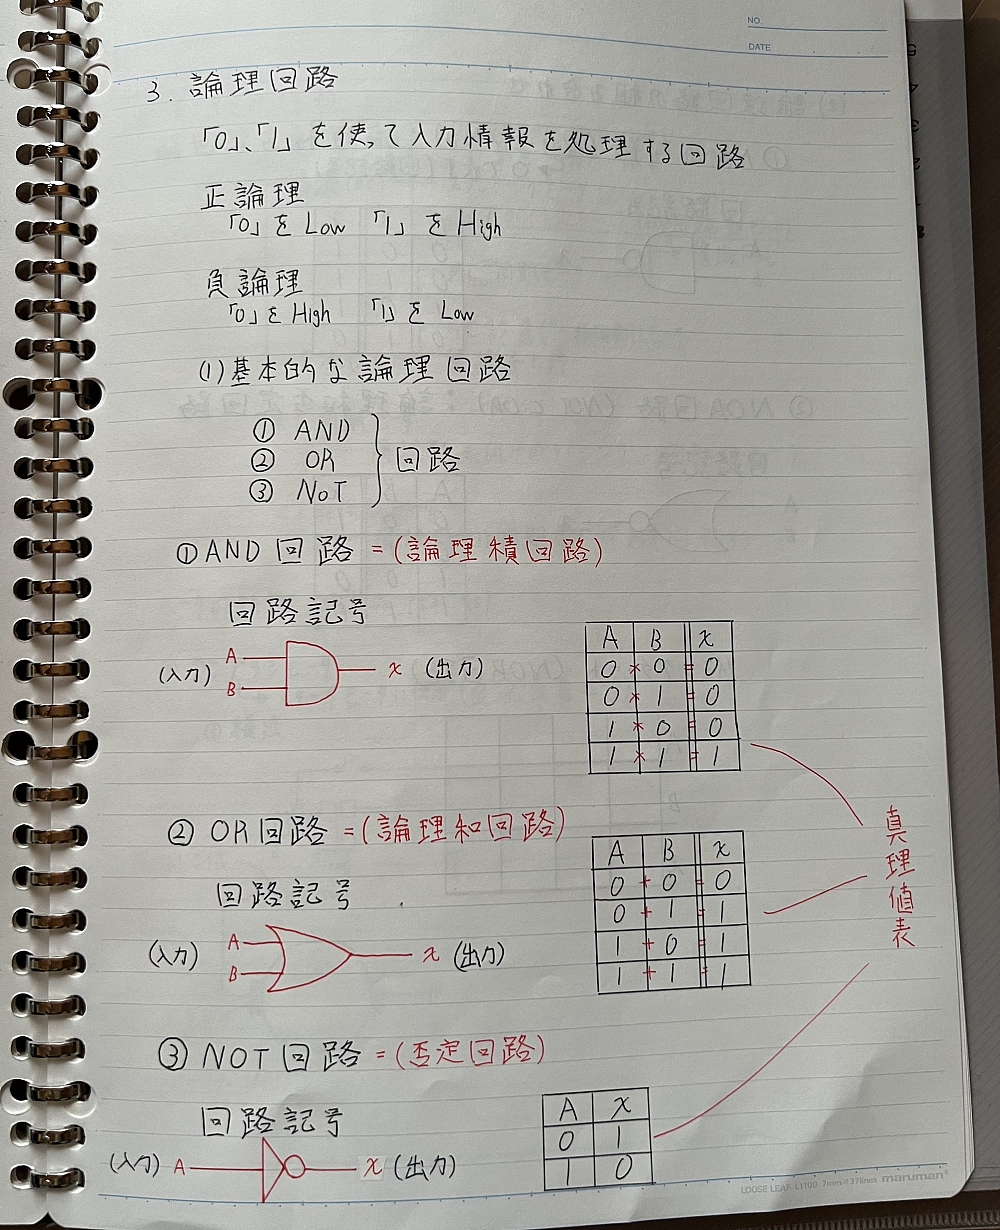 NO.
DATE
3. 論理回路
「0」、「1」を使って入力情報を処理する回路
正論理
「0」を Low 「1」を High
負論理
「0」を High 「1」を Low
(1)基本的な論理回路
① AND
② OR
③ NOT
回路
①AND回路=(論理積回路)
回路記号
(入力) A B x (出力)
A B x
0 × 0 = 0
0 × 1 = 0
1 × 0 = 0
1 × 1 = 1
②OR回路=(論理和回路)
回路記号
(入力) A B x (出力)
A B x
0 + 0 = 0
0 + 1 = 1
1 + 0 = 1
1 + 1 = 1
真理値表
③NOT回路=(否定回路)
回路記号
(入力) A x (出力)
A x
0 1
1 0
LOOSE LEAF L1100 7mm×37lines maruman